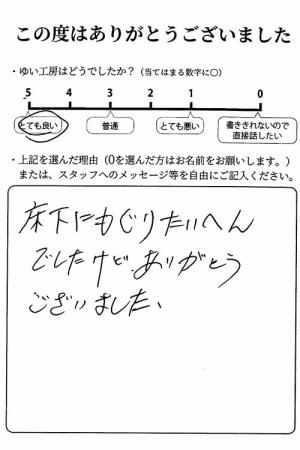 この度はありがとうございました
・ゆい工房はどうでしたか？（当てはまる数字に○）
5 4 3 2 1 0
とても良い 普通 とても悪い 書ききれないので直接話したい
・上記を選んだ理由（0を選んだ方はお名前をお願いします。）
または、スタッフへのメッセージ等を自由にご記入ください。
床下にもぐりたいへん
でしたけど ありがとう
ございました、